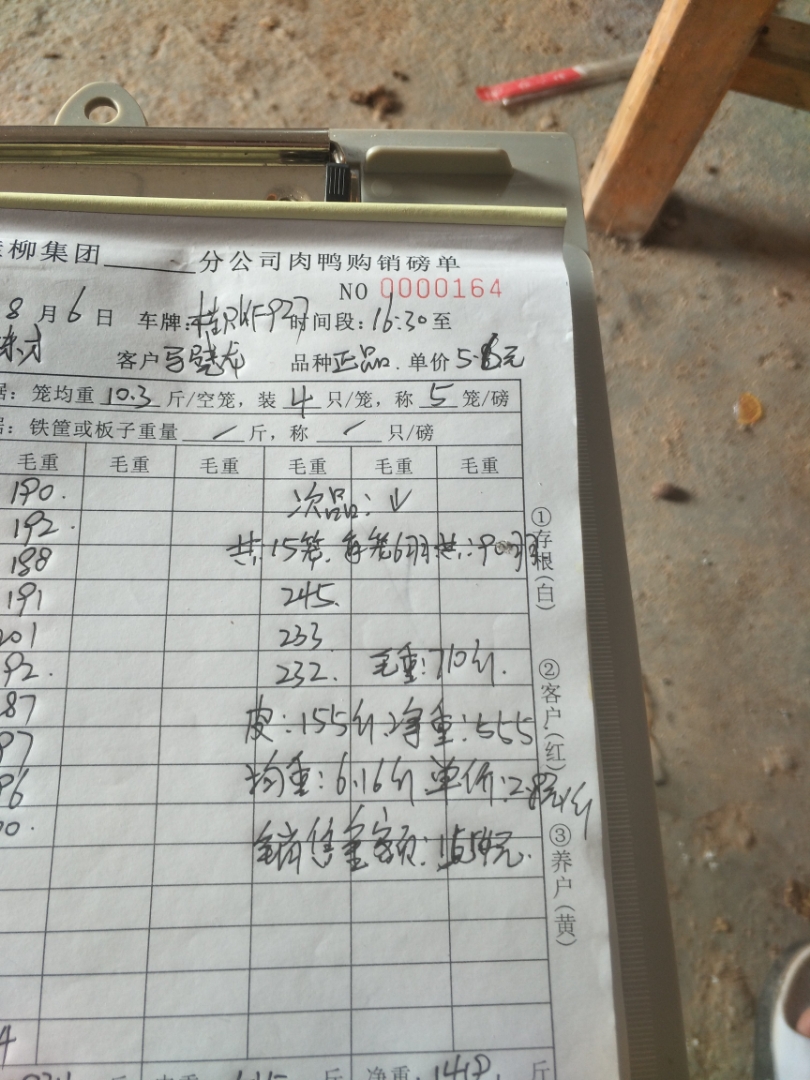 柳集团______分公司肉鸭购销磅单
NO 0000164
8月6日 车牌: 时间段:16:30至
客户 品种正品.单价5.8元
笼均重 10.3 斤/空笼,装 4 只/笼,称 5 笼/磅
铁筐或板子重量 / 斤,称 / 只/磅
毛重 毛重 毛重 毛重 毛重 毛重
190. 次品:↓
192. 共:15笼,每笼6羽共:90羽
188
191 245.
201 233
92. 232. 毛重:710斤.
87 皮:155斤 净重:555
97
96 均重:6.16斤 单价:2.8元/斤
00. 销售金额:1554元.
4
斤 斤 净重 1419. 斤
①存根(白)
②客户(红)
③养户(黄)